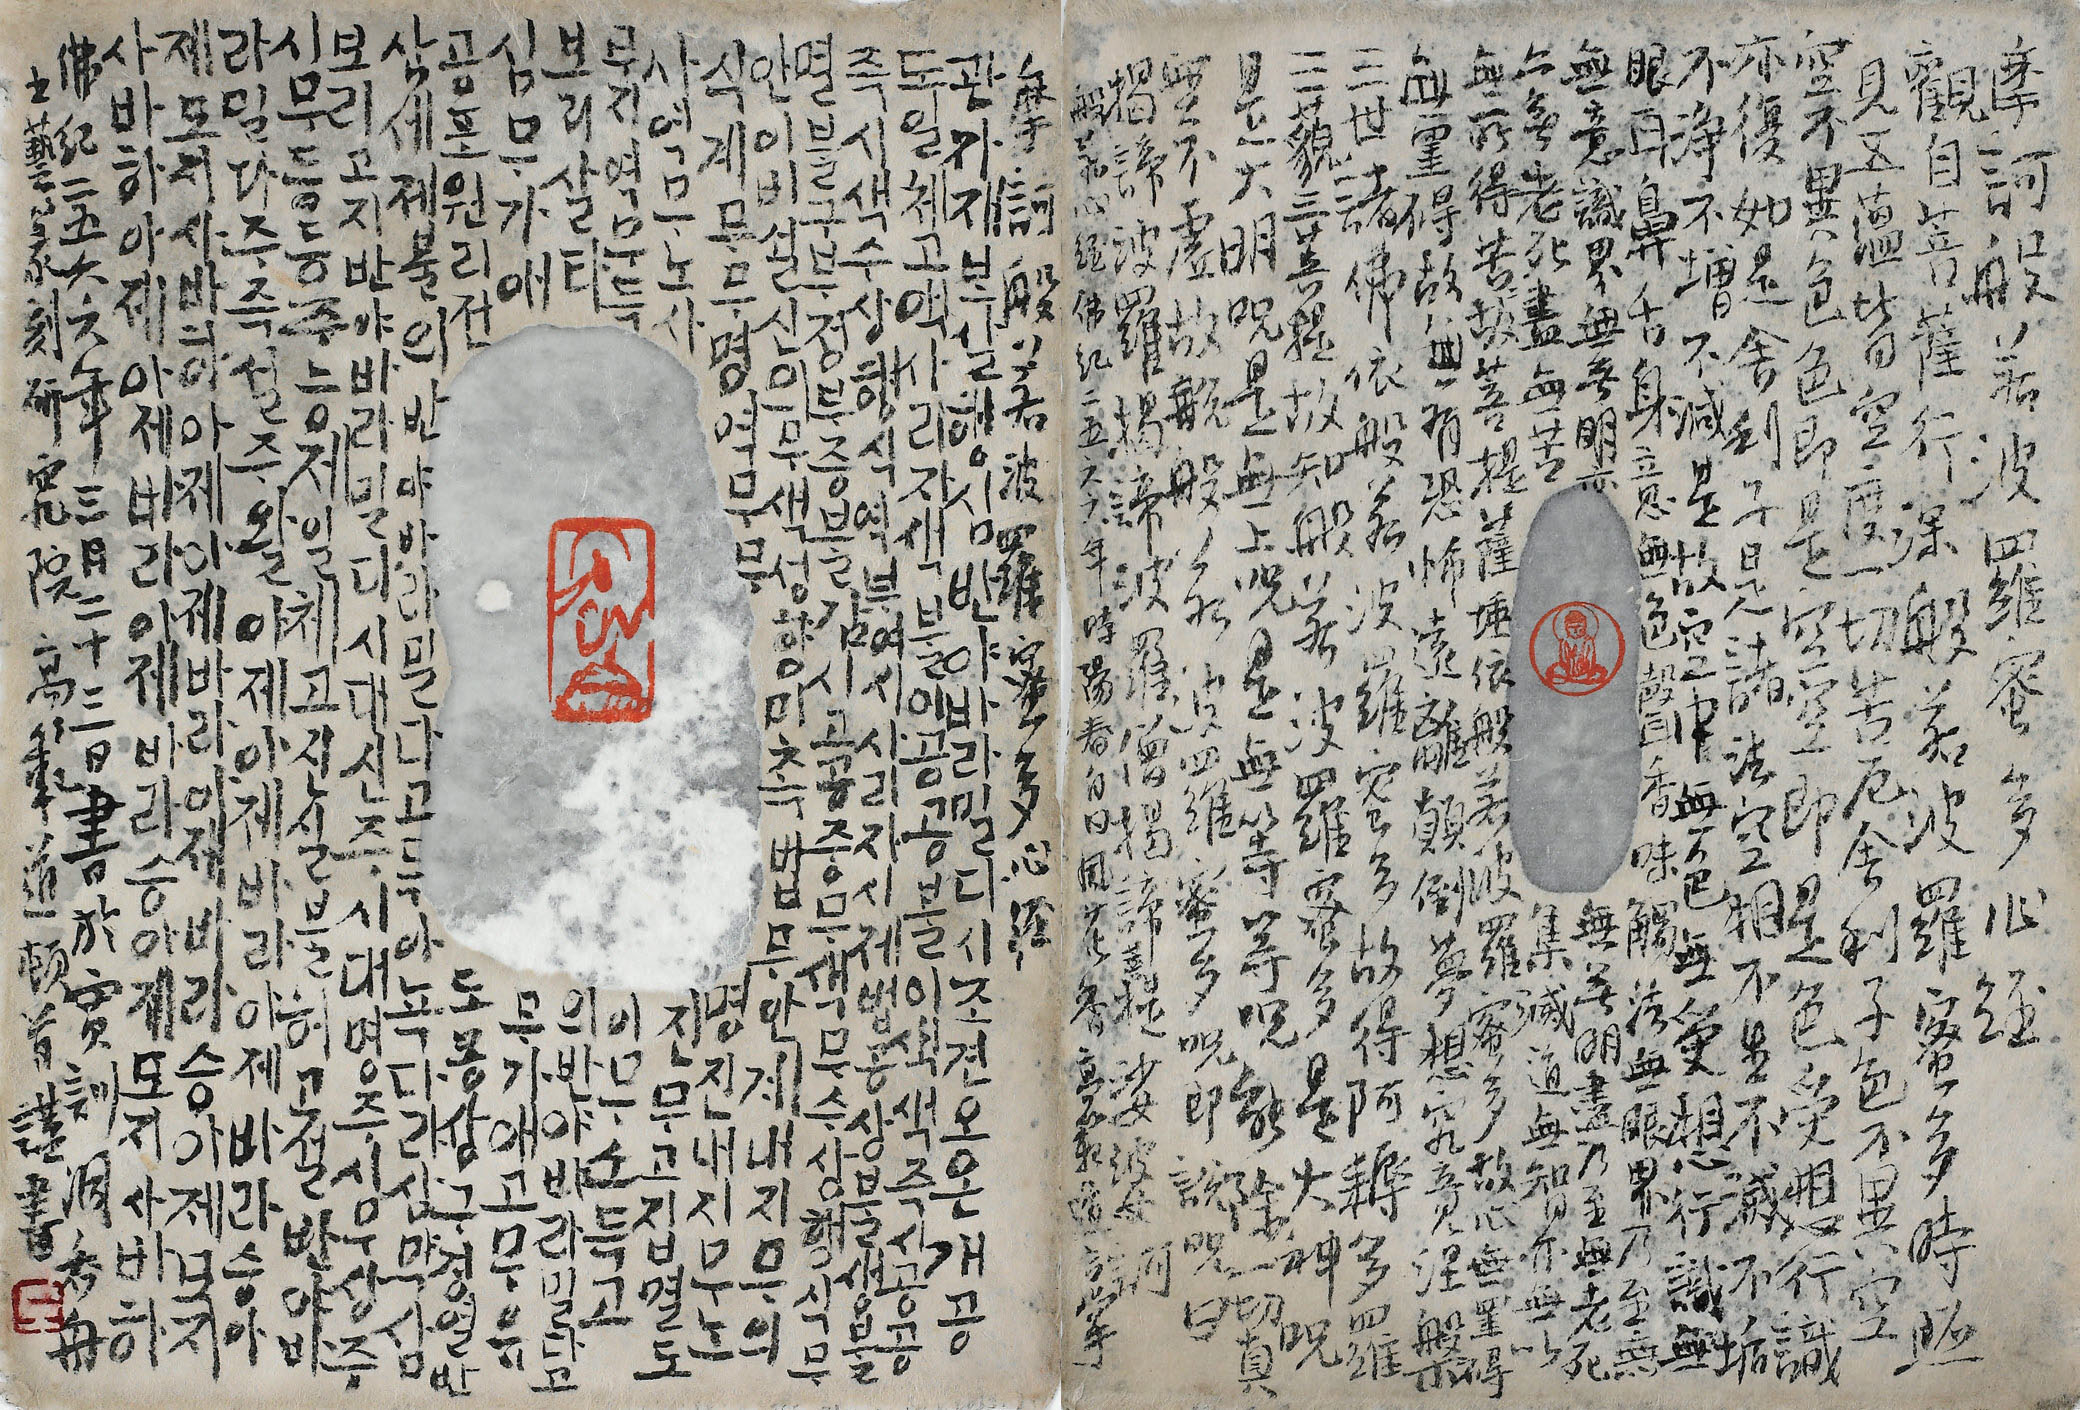 摩訶般若波羅蜜多心経
觀自菩薩行深般若波羅蜜多時照
見五蘊皆空度一切苦厄舍利子色不異空
空不異色色即是空空即是色受想行識
亦復如是舍利子是諸法空相不生不滅不垢
不淨不增不減是故空中無色無受想行識無
眼耳鼻舌身意無色聲香味觸法無眼界乃至無
無意識界無無明亦無無明盡乃至無老死
亦無老死盡無苦集滅道無智亦無以
無所得苦故菩提薩埵依般若波羅蜜多故心無罣得
無罣碍故無有恐怖遠離顛倒夢想究竟涅槃
三世諸佛依般若波羅蜜多故得阿耨多羅
三藐三菩提故知般若波羅蜜多是大神呪
是大明呪是無上呪是無等等呪能除一切真
無不虛故說般若波羅蜜多呪即說呪曰
揭諦波羅揭諦波羅僧揭諦菩提娑婆訶
般若心經佛紀二五六六年時陽春白日風花香
摩訶般若波羅蜜多心経
관자재보살행심반야바라밀다시조견오온개공
도일체고액사리자색불이공공불이색색즉시공공
즉시색수상행식역부여시사리자시제법공상불생불
멸불구부정부증불감시고공중무색무수상행식무
안이비설신의무색성향미촉법무안계내지무의
식계무무명역무무명진내지무노
사역무노사진무고집멸도
무지역무득이무소득고
보리살타의반야바라밀다고
심무가애무가애고무유
공포원리전도몽상구경열반
삼세제불의반야바라밀다고득아뇩다라삼먁삼
보리고지반야바라밀다시대신주시대명주시무상주
시무등등주능제일체고진실불허고설반야바
라밀다주즉설주왈아제아제바라아제바라승아
제모지사바하아제아제바라아제바라승아제모지
사바하아제아제바라아제바라승아제모지사바하
佛紀二五六六年三月二十三日書於寅訓洞
土藝篆刻研究院 高 道一頓首謹書